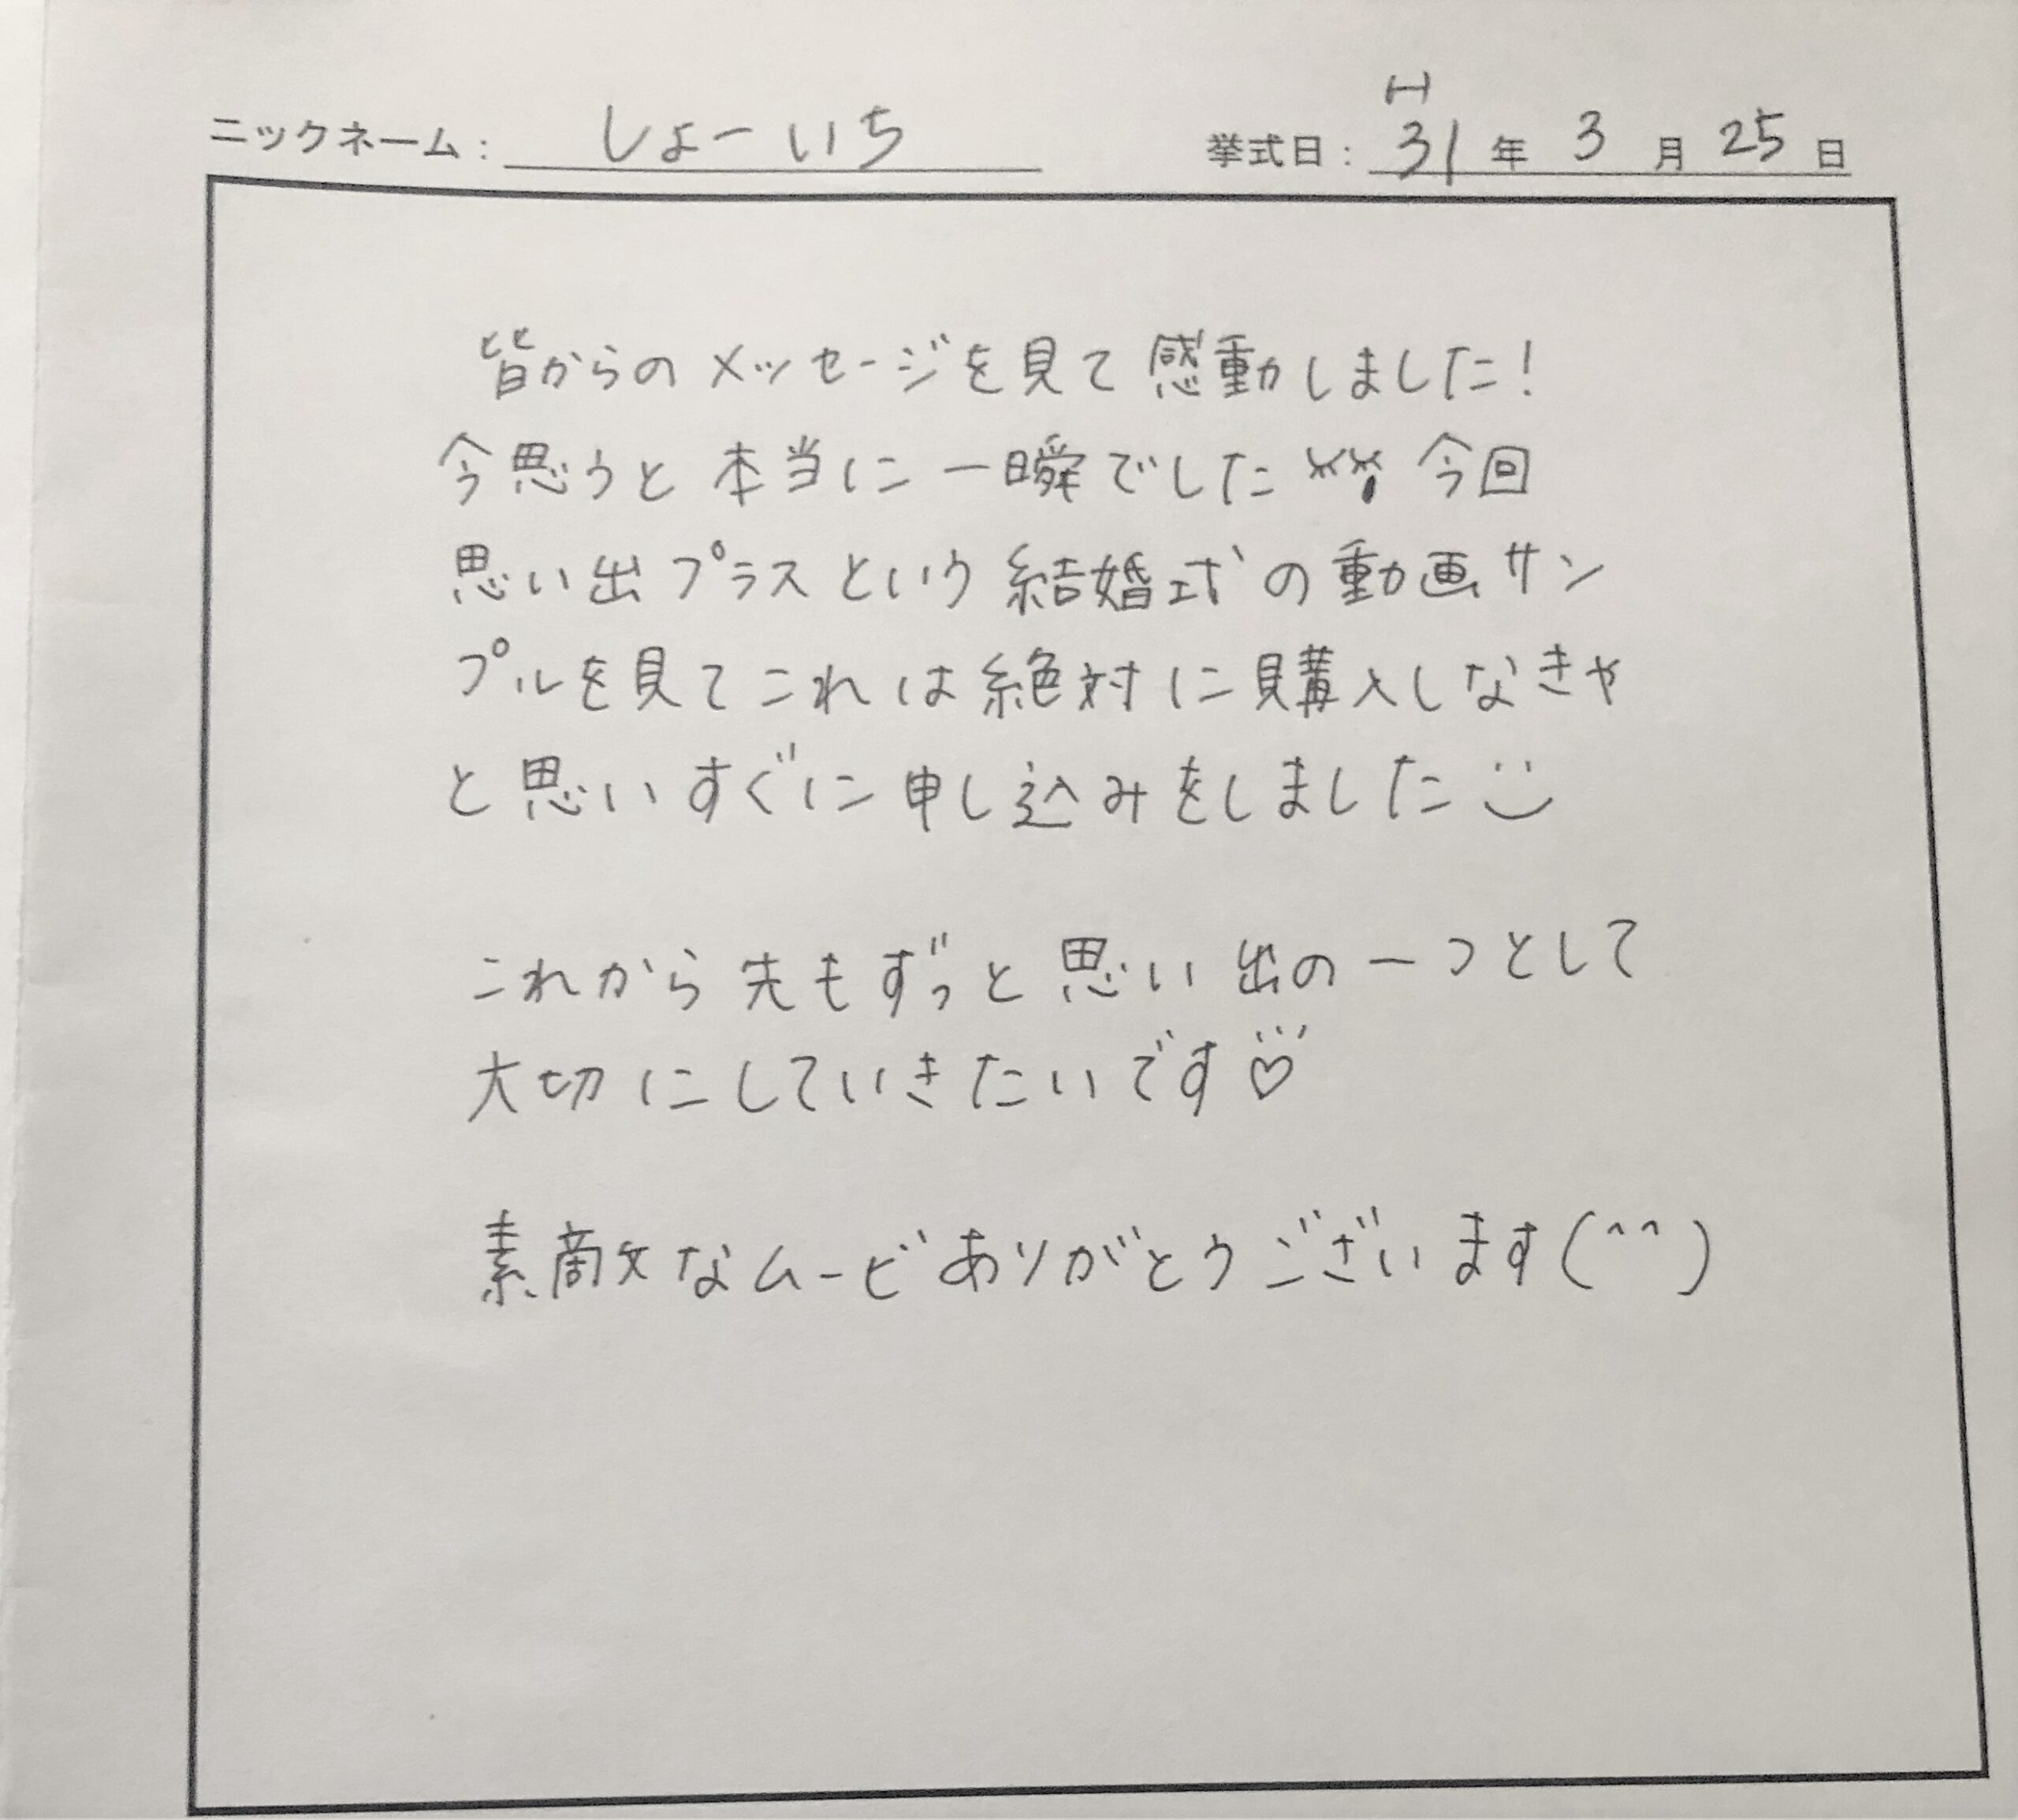 ニックネーム： しょーいち 挙式日： H31年 3月 25日
皆からのメッセージを見て感動しました！
今思うと本当に一瞬でした 今回
思い出プラスという結婚式の動画サン
プルを見てこれは絶対に購入しなきゃ
と思いすぐに申し込みをしました
これから先もずっと思い出の一つとして
大切にしていきたいです♡
素敵なムービーありがとうございます(^^)